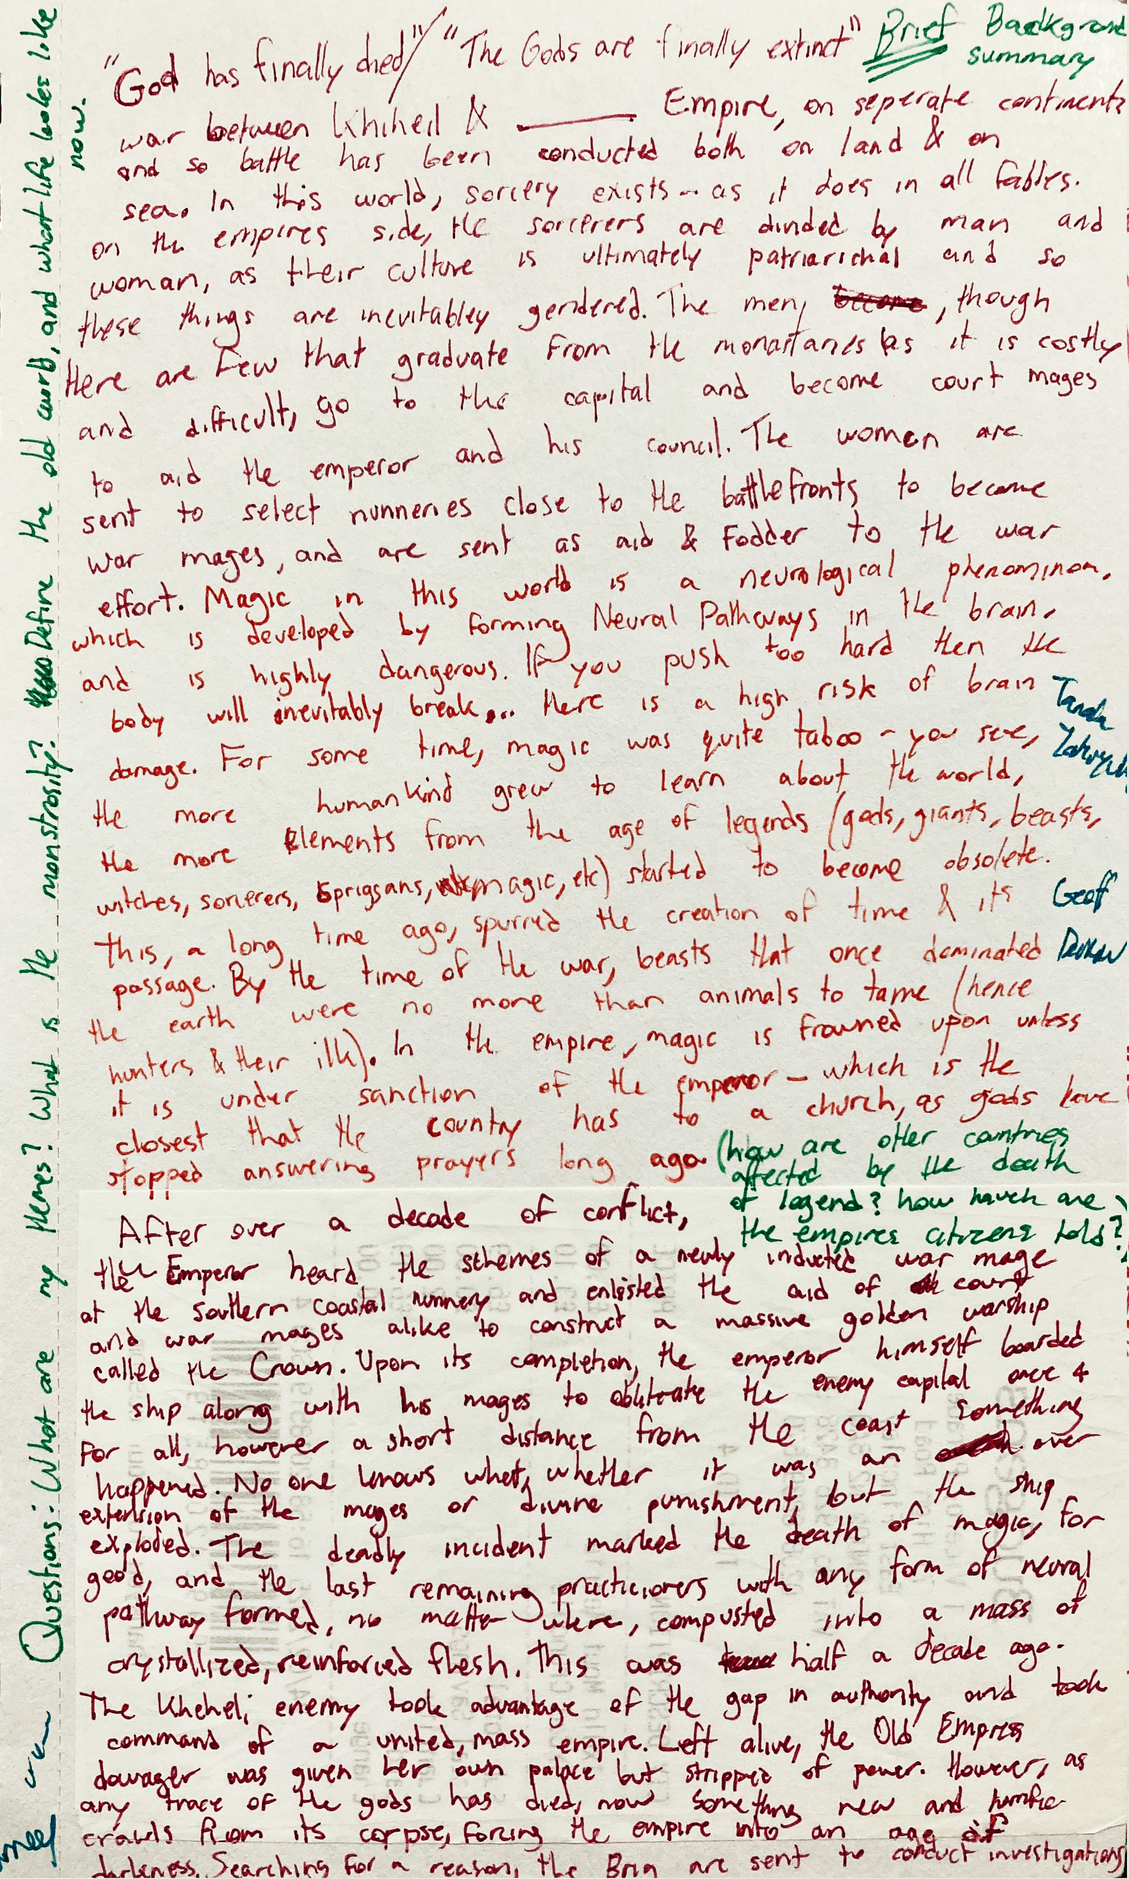 "God has finally died"/ "The Gods are finally extinct" Brief Background
summary
war between Khiheil & ______ Empire, on seperate continents
and so battle has been conducted both on land & on
sea. In this world, sorcery exists - as it does in all fables.
on the empires side, the sorcerers are divided by man and
woman, as their culture is ultimately patriarichal and so
these things are inevitabley gendered. The men, become, though
there are few that graduate from the monastaries as it is costly
and difficult, go to the capital and become court mages
to aid the emperor and his council. The women are
sent to select nunneries close to the battlefronts to become
war mages, and are sent as aid & fodder to the war
effort. Magic in this world is a neurological phenominon,
which is developed by forming Neural Pathways in the brain,
and is highly dangerous. If you push too hard then the
body will inevitably break... there is a high risk of brain
damage. For some time, magic was quite taboo - you see,
the more humankind grew to learn about the world,
the more elements from the age of legends (gods, giants, beasts,
witches, sorcerers, sprigsans, magic, etc) started to become obsolete.
This, a long time ago, spurred the creation of time & its
passage. By the time of the war, beasts that once dominated
the earth were no more than animals to tame (hence
hunters & their ilk). In the empire, magic is frowned upon unless
it is under sanction of the emperor - which is the
closest that the country has to a church, as gods have
stopped answering prayers long ago (how are other countries
affected by the death
of legend? how are
the empires citizens told?)
After over a decade of conflict,
the Emperor heard the schemes of a newly inducted war mage
at the southern coastal nunnery and enlisted the aid of court
and war mages alike to construct a massive golden warship
called the Crown. Upon its completion, the emperor himself boarded
the ship along with his mages to obliterate the enemy capital once &
for all, however a short distance from the coast something
happened. No one knows what, whether it was an over
extension of the mages or divine punishment, but the ship
exploded. The deadly incident marked the death of magic, for
good, and the last remaining practicioners with any form of neural
pathway formed, no matter where, compusted into a mass of
crystallized, reinforced flesh. This was half a decade ago.
The Kheheli enemy took advantage of the gap in authority and took
command of a united, mass empire. Left alive, the Old Empress
dowager was given her own palace but stripped of power. However, as
any trace of the gods has died, now something new and horrific
crawls from its corpse, forcing the empire into an age of
darkness. Searching for a reason, the Bria are sent to conduct investigations
Questions: What are my themes? What is the monstrosity? Define the old world, and what life looks like
now.
Tanda
Geoff